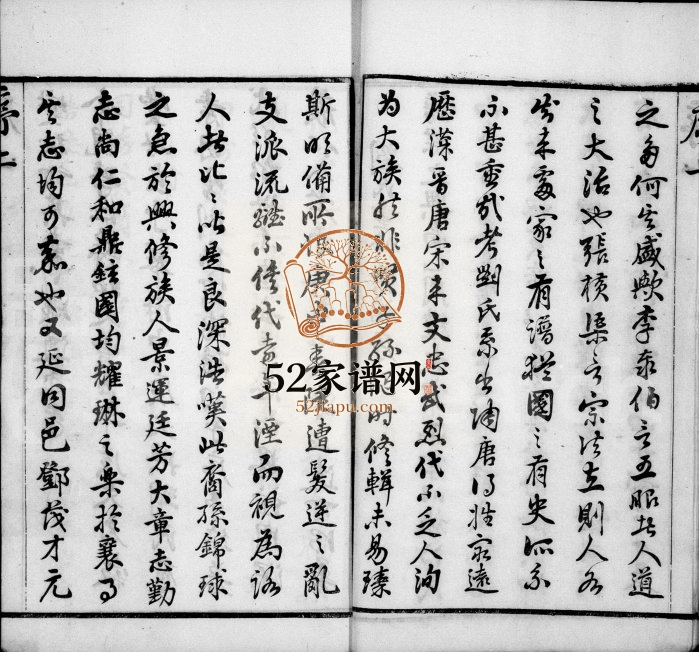 之多何其盛歟李泰伯言五服者人道
之大治也張橫渠言宗法立則人各
知来處家之有譜猶國之有史所系
不甚重哉考劉氏系出陶唐得姓最遠
歷漢晉唐宋来文忠武烈代不乏人洵
为大族然非 修輯未易臻
斯明備 遭髮逆之亂
支派流 不修代遠年湮而視為路
人者比比皆是良深浩嘆此裔孫錦球
之急於興修族人景運廷芳大章志勤
志尚仁和鼎鉉國均耀琳之樂於襄事
其志均可嘉也又延同邑鄧茂才元
序一
序二
52家谱网
52jiapu.com